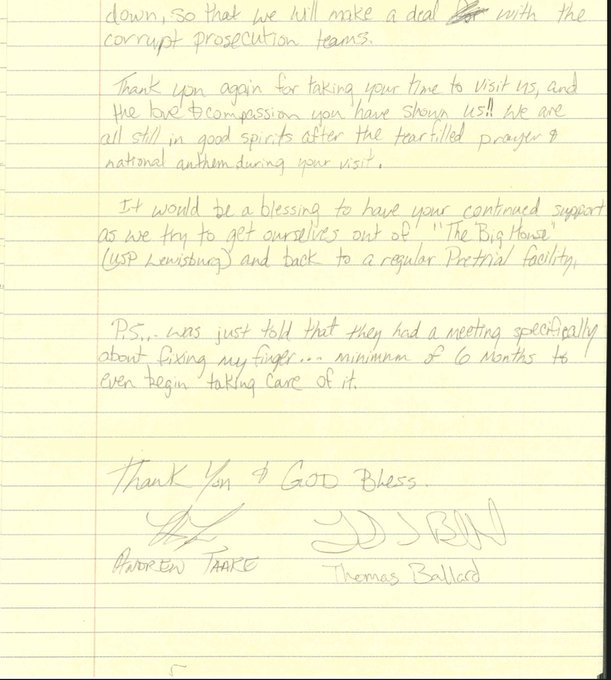 down, so that we will make a deal with the
corrupt prosecution teams.
Thank you again for taking your time to visit us, and
the love & compassion you have shown us!! We are
all still in good spirits after the tearfilled prayer &
national anthem during your visit.
It would be a blessing to have your continued support
as we try to get ourselves out of "The Big House"
(USP Lewisburg) and back to a regular Pretrial facility.
P.S... was just told that they had a meeting specifically
about fixing my finger... minimum of 6 Months to
even begin taking care of it.
Thank You & GOD Bless.
ANDREW TAAKE
Thomas Ballard
5